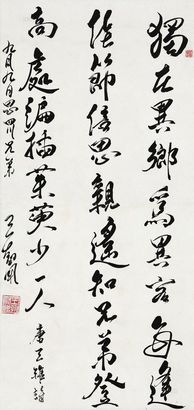 獨在異鄉為異客每逢
佳節倍思親遙知兄弟登
高處遍插茱萸少一人
唐王維詩
九月九日思兄弟